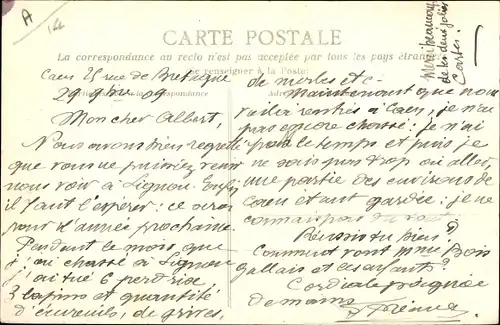 CARTE POSTALE
La correspondance au recto n'est pas acceptée par tous les pays étrangers
se renseigner à la Poste
Merci beaucoup
de tes deux jolies
Cartes.
Caen 25 rue de Bretagne
29 9bre 09
Mon cher Albert,
Nous avons bien regretté
que vous ne puissiez venir
nous voir à Lignou. Enfin
il faut l'espérer: ce sera
pour l'année prochaine.
Pendant le mois que
j'ai chassé à Lignou
j'ai tué 6 perdrix
3 lapins et quantité
d'écureuils, de grives,
de merles etc.
Maintenant que nous
voilà rentrés à Caen, je n'ai
pas encore chassé: je n'ai
pas le temps et puis je
ne sais pas trop où aller,
une partie des environs de
Caen étant gardée: je ne
connais pas du tout
Réussis-tu bien?
Comment vont Mme Bois
Gallais et ses enfants?
Cordiale poignée
de mains